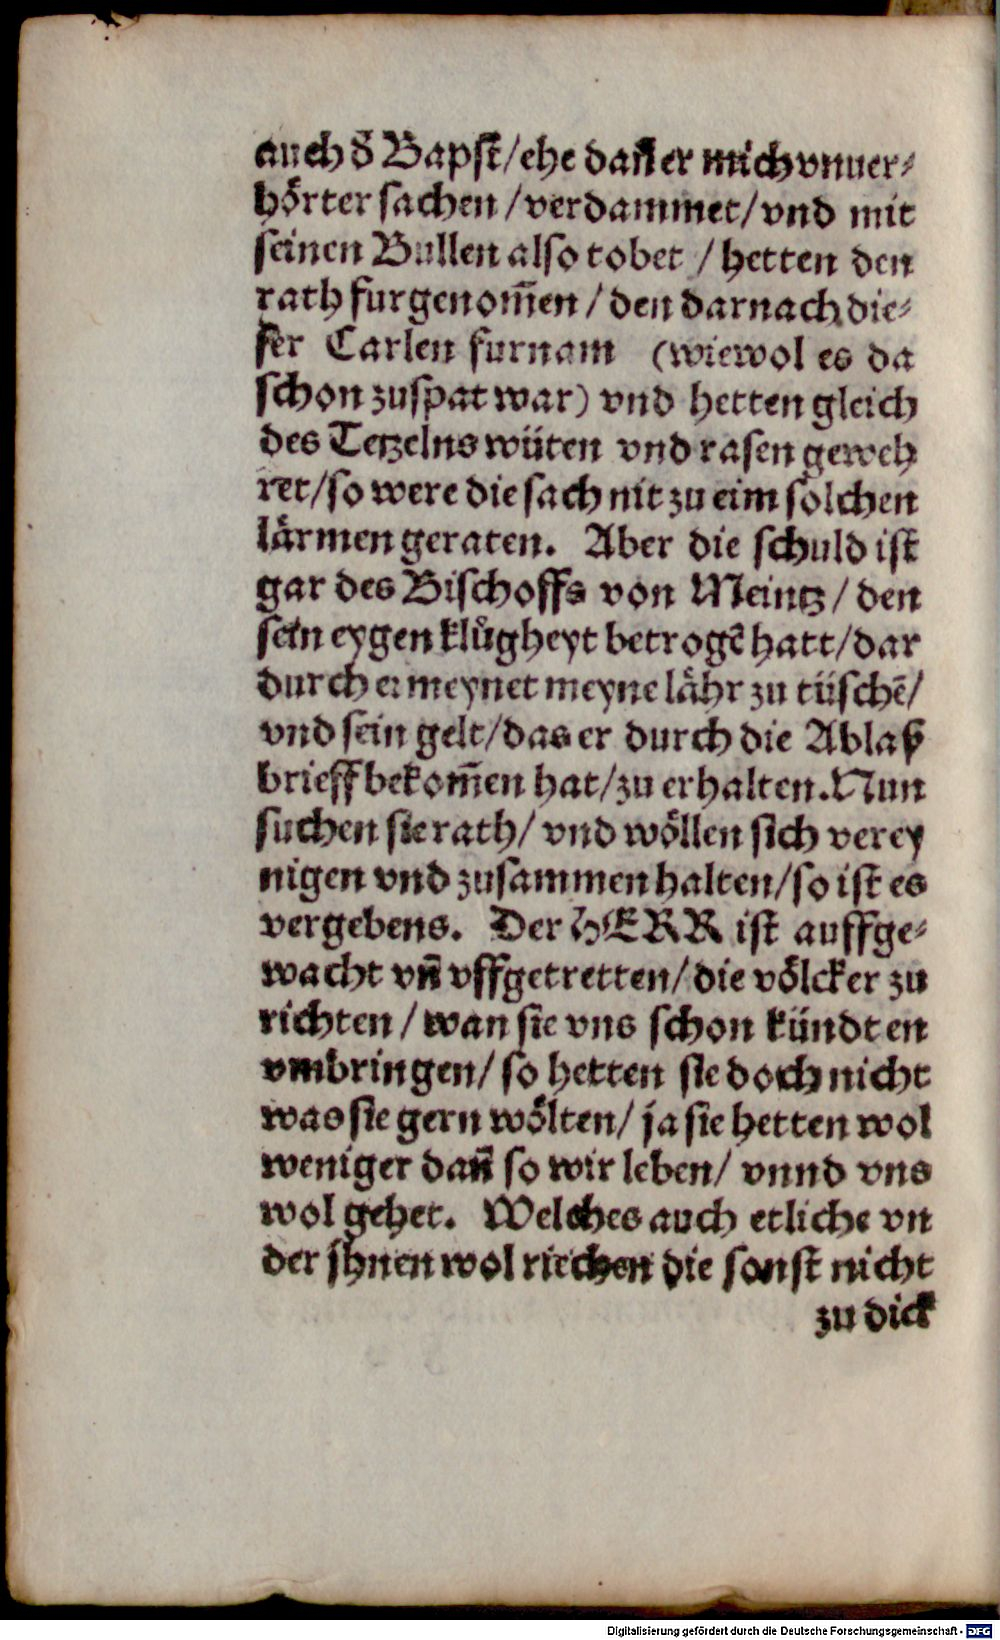 auch d̄ Bapst/ehe dañ er mich vnuer⸗
hörter sachen/verdammet/vnd mit
seinen Bullen also tobet/hetten den
rath furgenom̃en/den darnach die⸗
ser Carlen furnam (wiewol es da
schon zuspat war) vnd hetten gleich
des Tetzelns wüten vnd rasen geweh
ret/so were die sach nit zu eim solchen
lärmen geraten. Aber die schuld ist
gar des Bischoffs von Meintz/den
sein eygen klůgheyt betrogẽ hatt/dar
durch er meynet meyne lähr zu tüschẽ/
vnd sein gelt/das er durch die Ablaß
brieff bekom̃en hat/zu erhalten. Nun
suchen sie rath/vnd wöllen sich verey
nigen vnd zusammen halten/so ist es
vergebens. Der HERR ist auffge⸗
wacht vñ vffgetretten/die völcker zu
richten/wan sie vns schon kündten
vmbringen/so hetten sie doch nicht
was sie gern wölten/ja sie hetten wol
weniger dañ so wir leben/vnnd vns
wol gehet. Welches auch etliche vn
der jhnen wol riechen die sonst nicht
zu dick
Digitalisierung gefördert durch die Deutsche Forschungsgemeinschaft - DFG